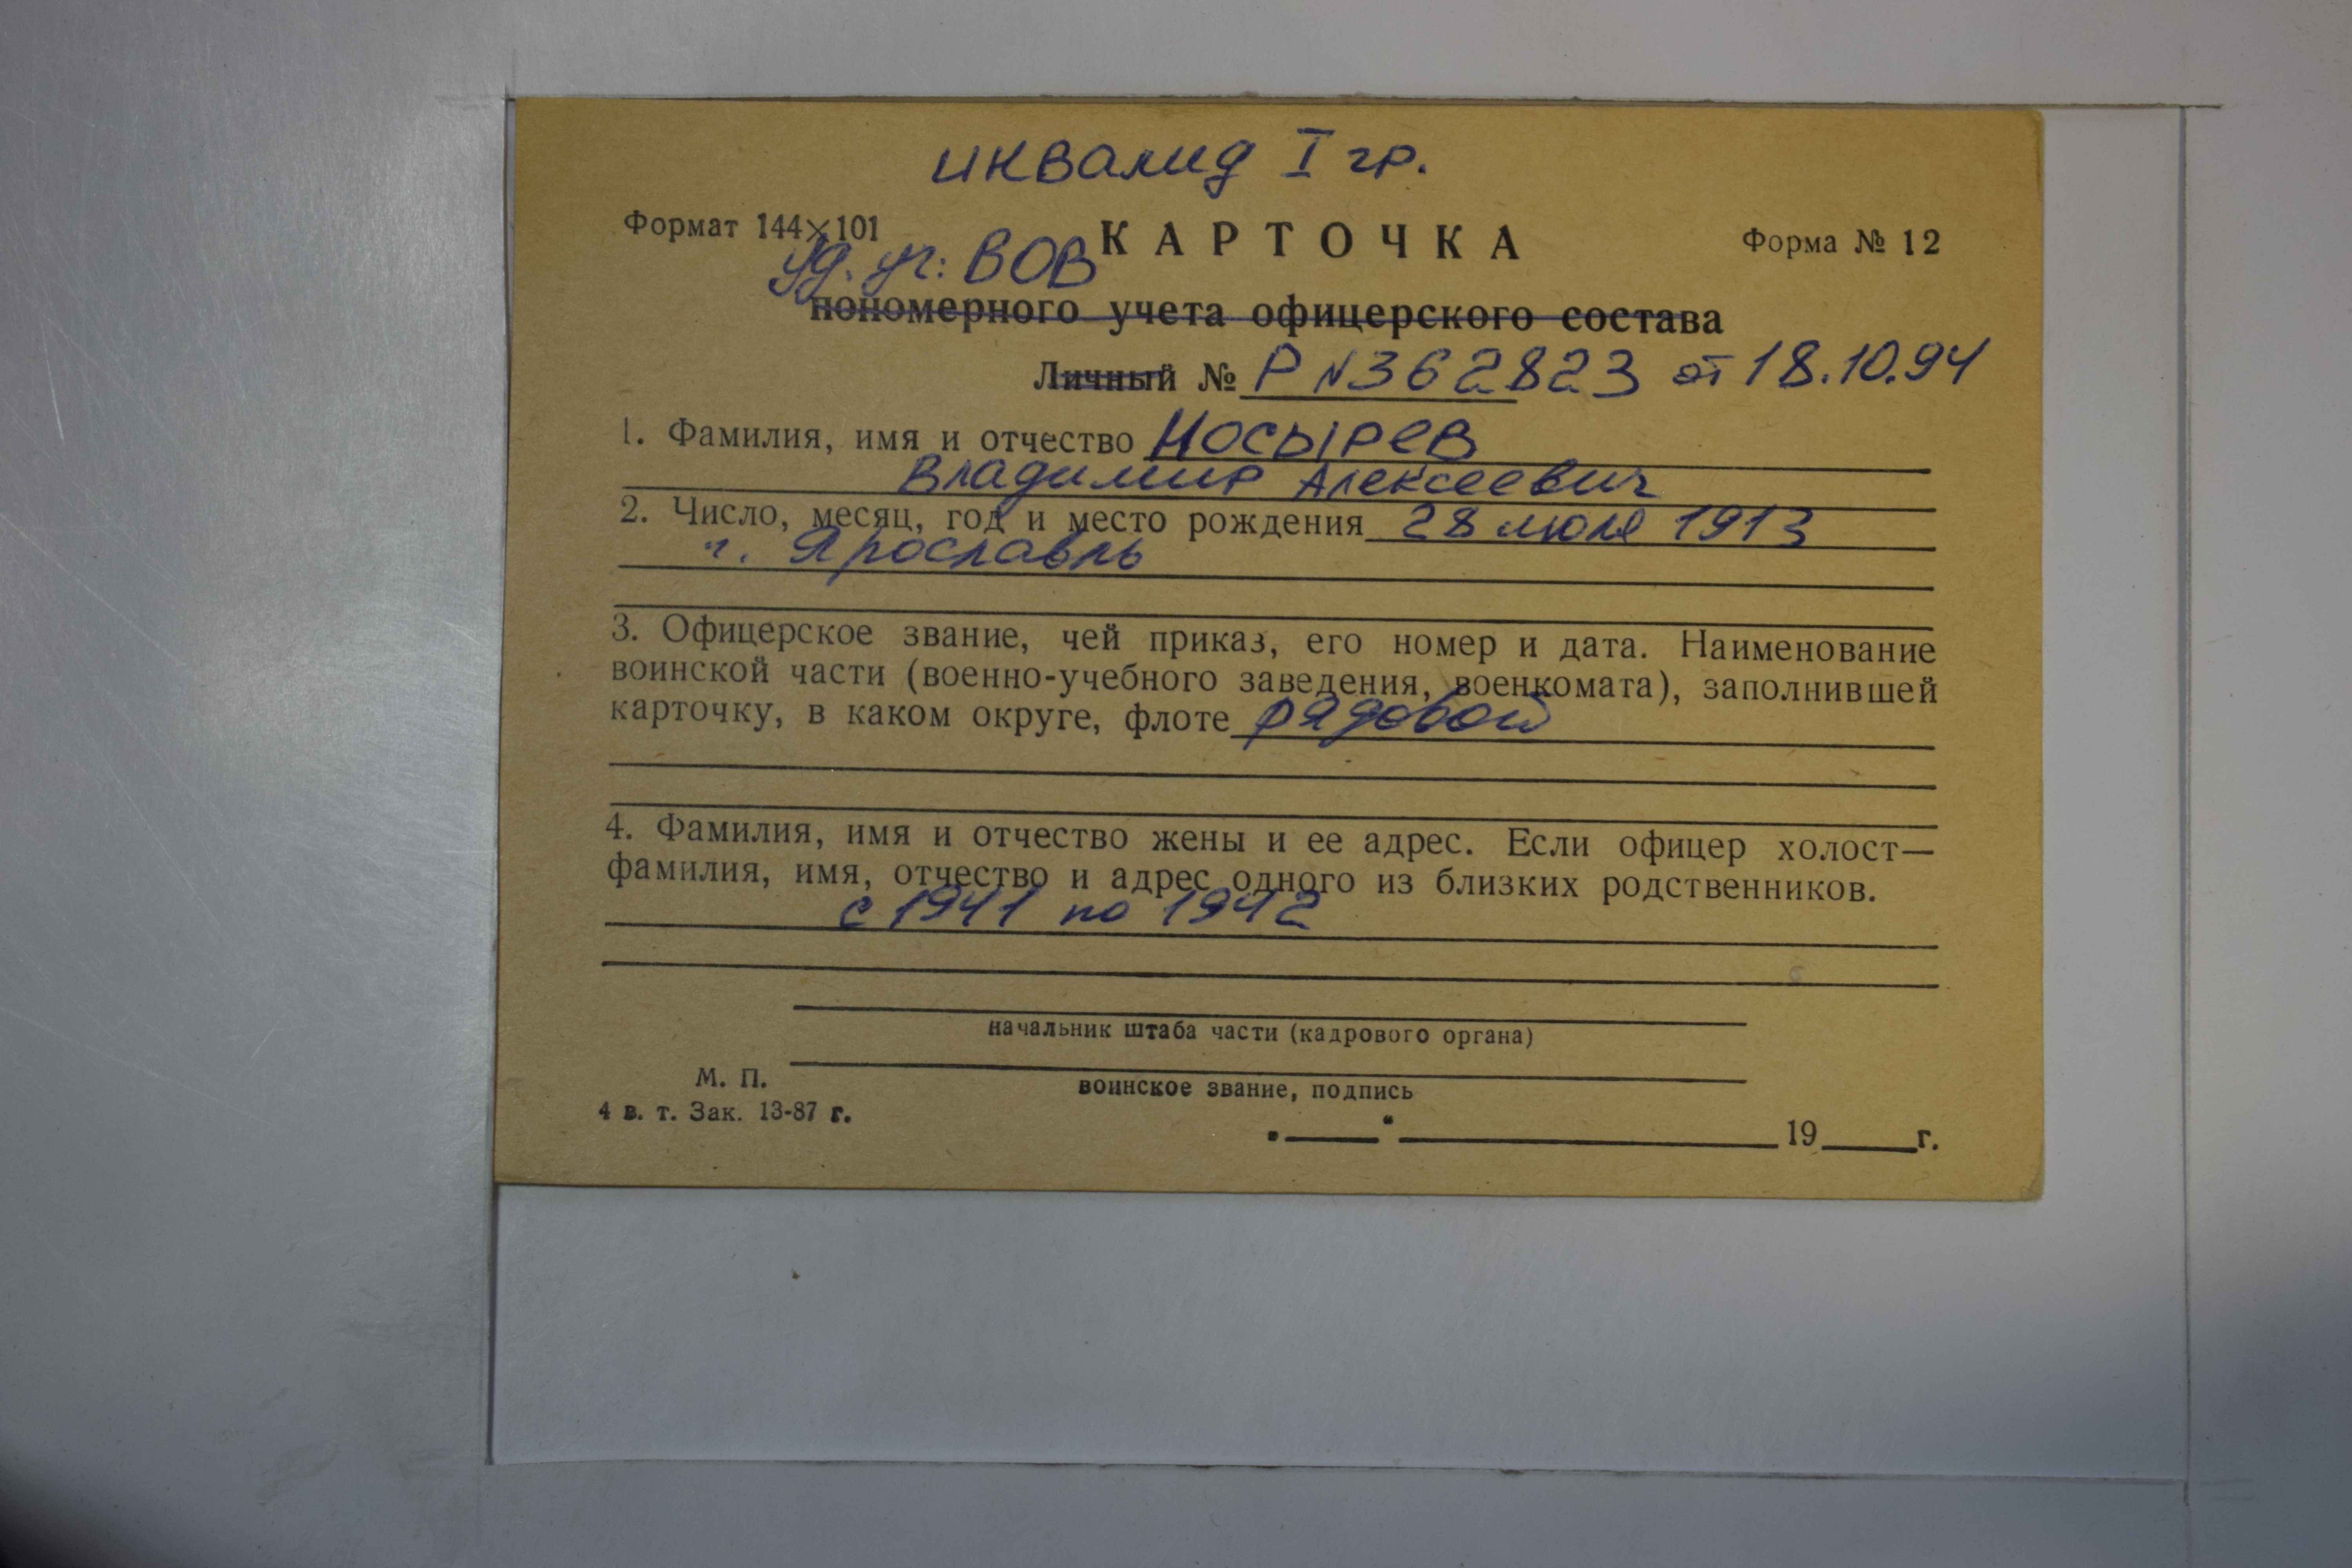 инвалид I гр.
Формат 144×101 КАРТОЧКА Форма № 12
уд. уч: ВОВ
пономерного учета офицерского состава
Личный № Р N362823 от 18.10.94
1. Фамилия, имя и отчество Носырев
Владимир Алексеевич
2. Число, месяц, год и место рождения 28 июля 1913
г. Ярославль
3. Офицерское звание, чей приказ, его номер и дата. Наименование
воинской части (военно-учебного заведения, военкомата), заполнившей
карточку, в каком округе, флоте рядовой
4. Фамилия, имя и отчество жены и ее адрес. Если офицер холост—
фамилия, имя, отчество и адрес одного из близких родственников.
с 1941 по 1942
начальник штаба части (кадрового органа)
М. П.
воинское звание, подпись
4 в. т. Зак. 13-87 г.
„____“ ____________ 19____г.